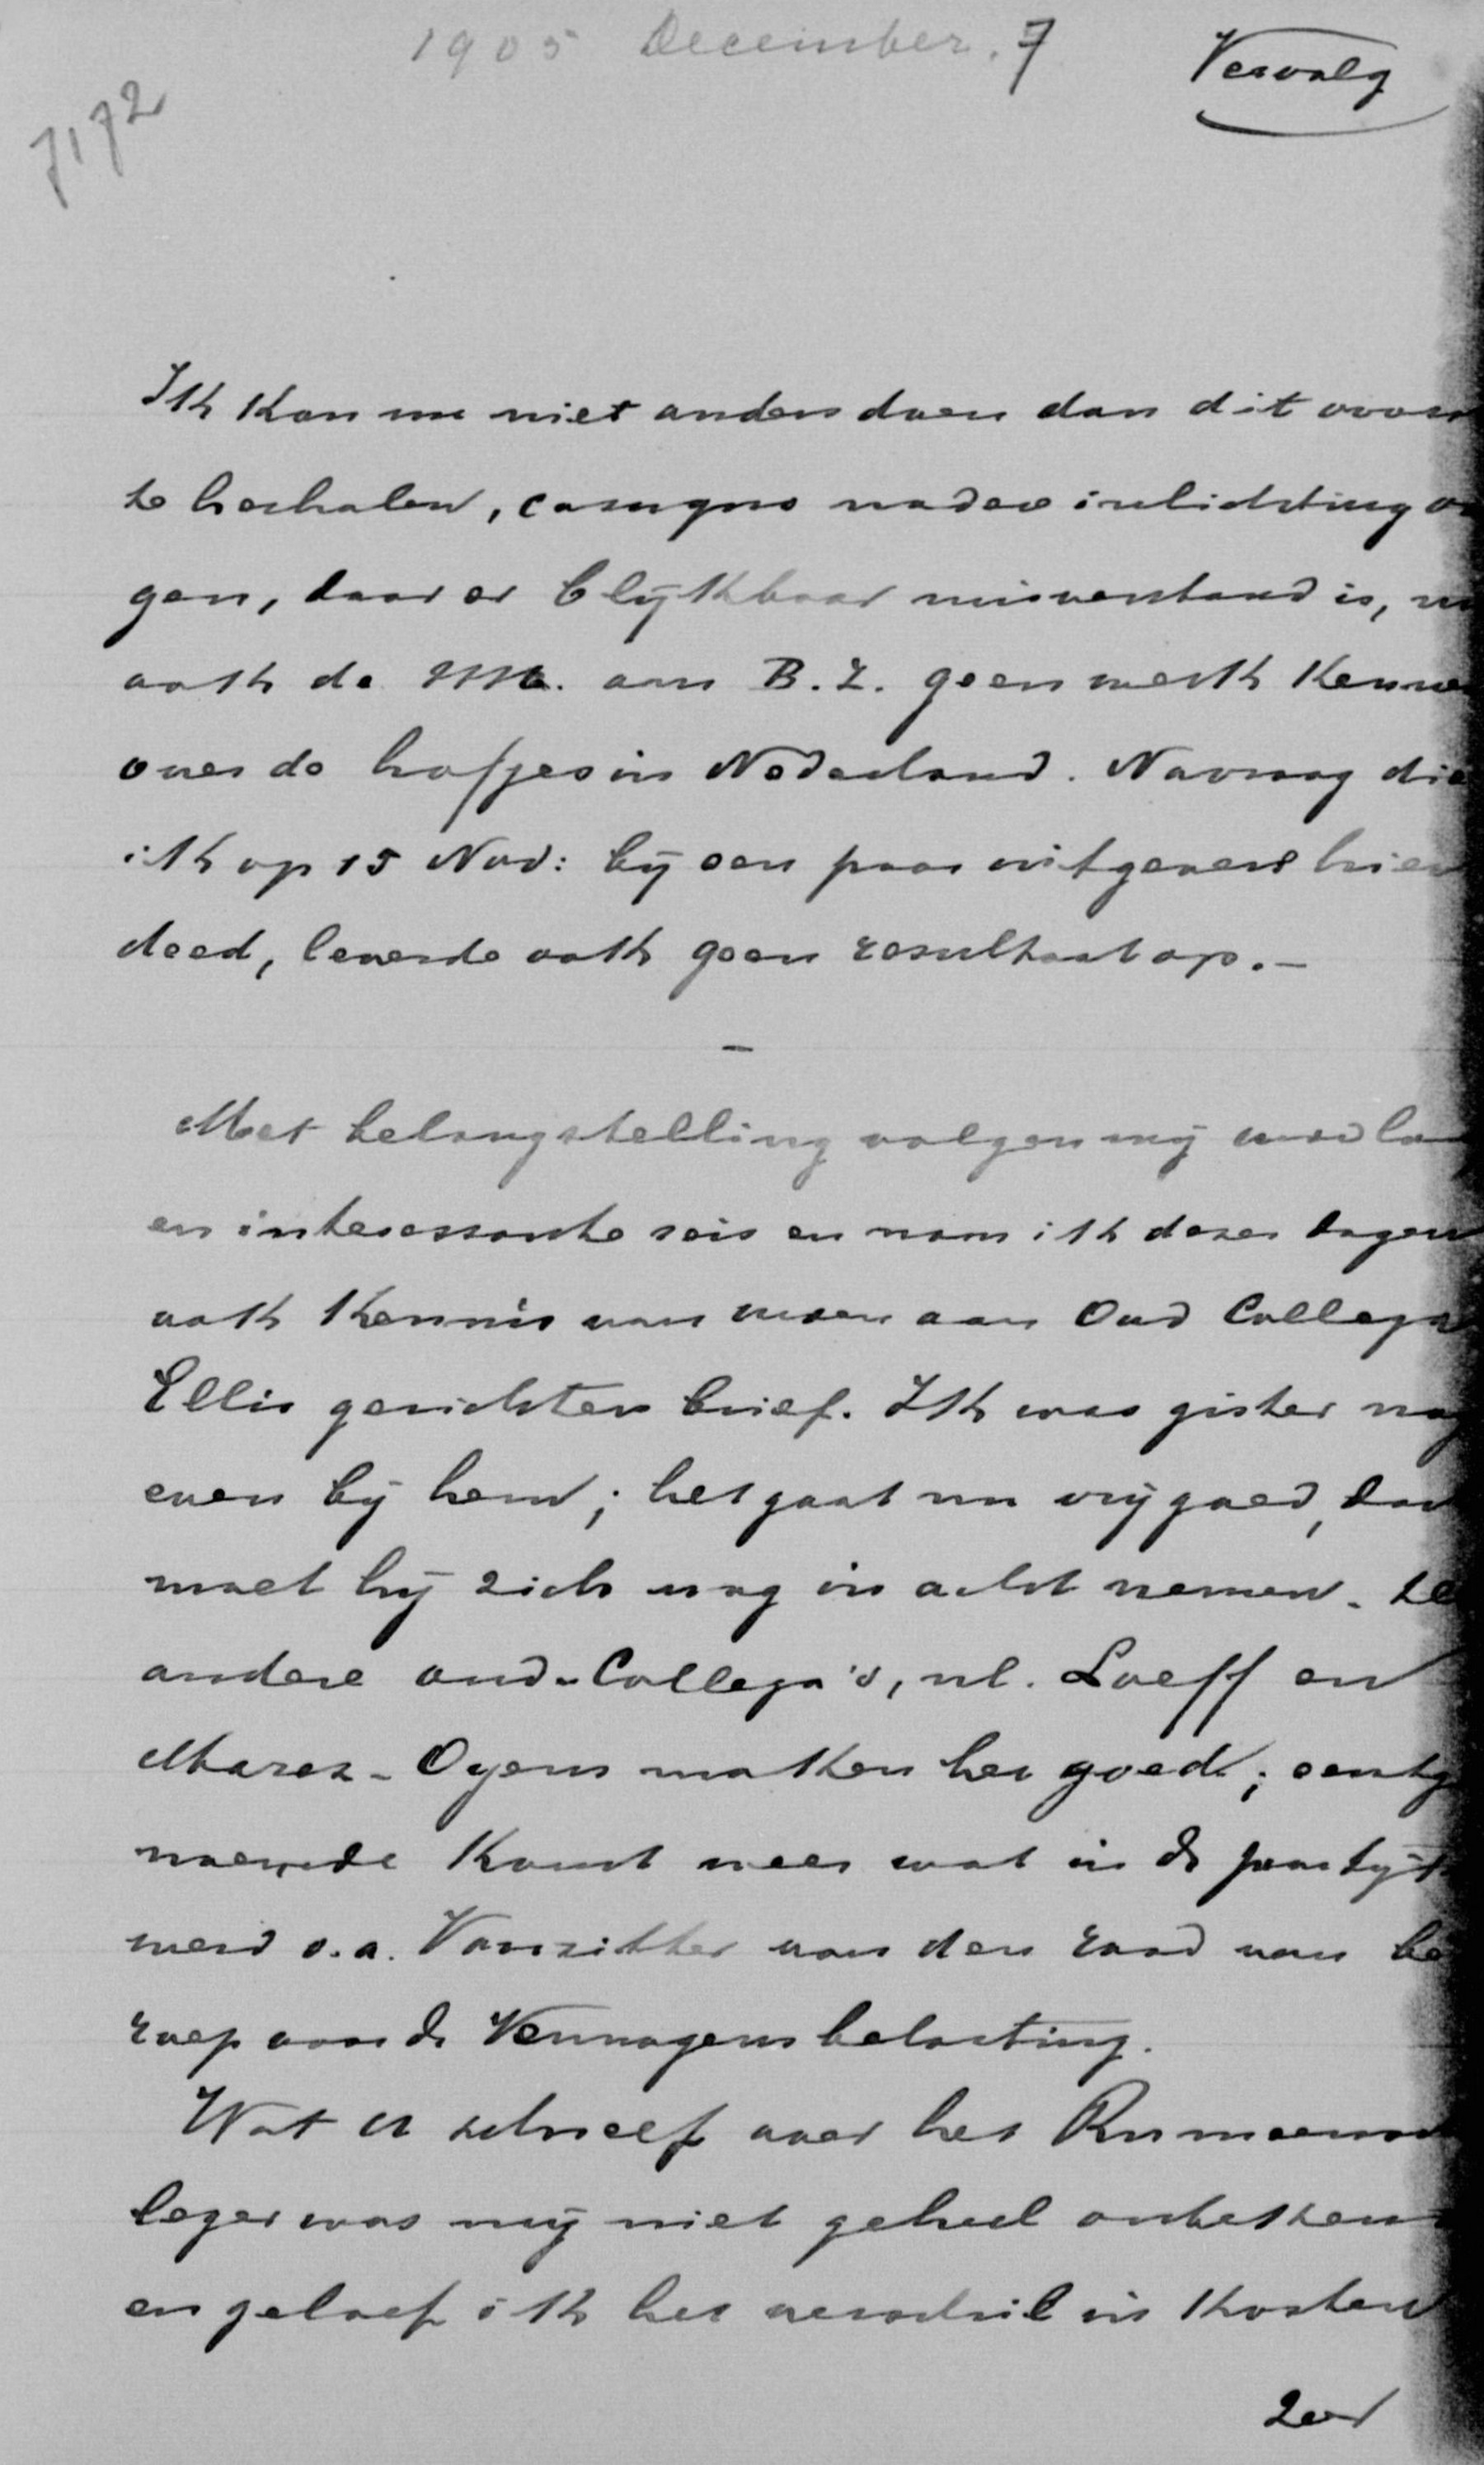 1905 December. 7
Vervolg
7172
Ik kan nu niet anders doen dan dit
te herhalen, casuquo nadere inlichting
gen, daar er blijkbaar misverstand is,
ook de MM. van B.Z. geen werk kennen
over de hofjes in Nederland. Navraag die
ik op 15 Nov: bij een paar uitgevers hier
deed, leverde ook geen resultaat op.–
–
Met belangstelling volgen wij uwe
en interessante reis en nam ik dezer dagen
ook kennis van uwen aan Oud Collega
Ellis gerichten brief. Ik was gister nog
even bij hem; het gaat nu vrij goed,
moet hij zich nog in acht nemen. De
andere oud-Collega's, nl. Loeff en
Marez-Oyens maken het goed; eerstge
noemde komt weer wat in de praktijk
werd o.a. Voorzitter van den raad van be
roep voor de Vermogensbelasting.
Wat U schreef over het Rumeensch
leger was mij niet geheel onbekend
en geloof ik het verschil in kosten
zer